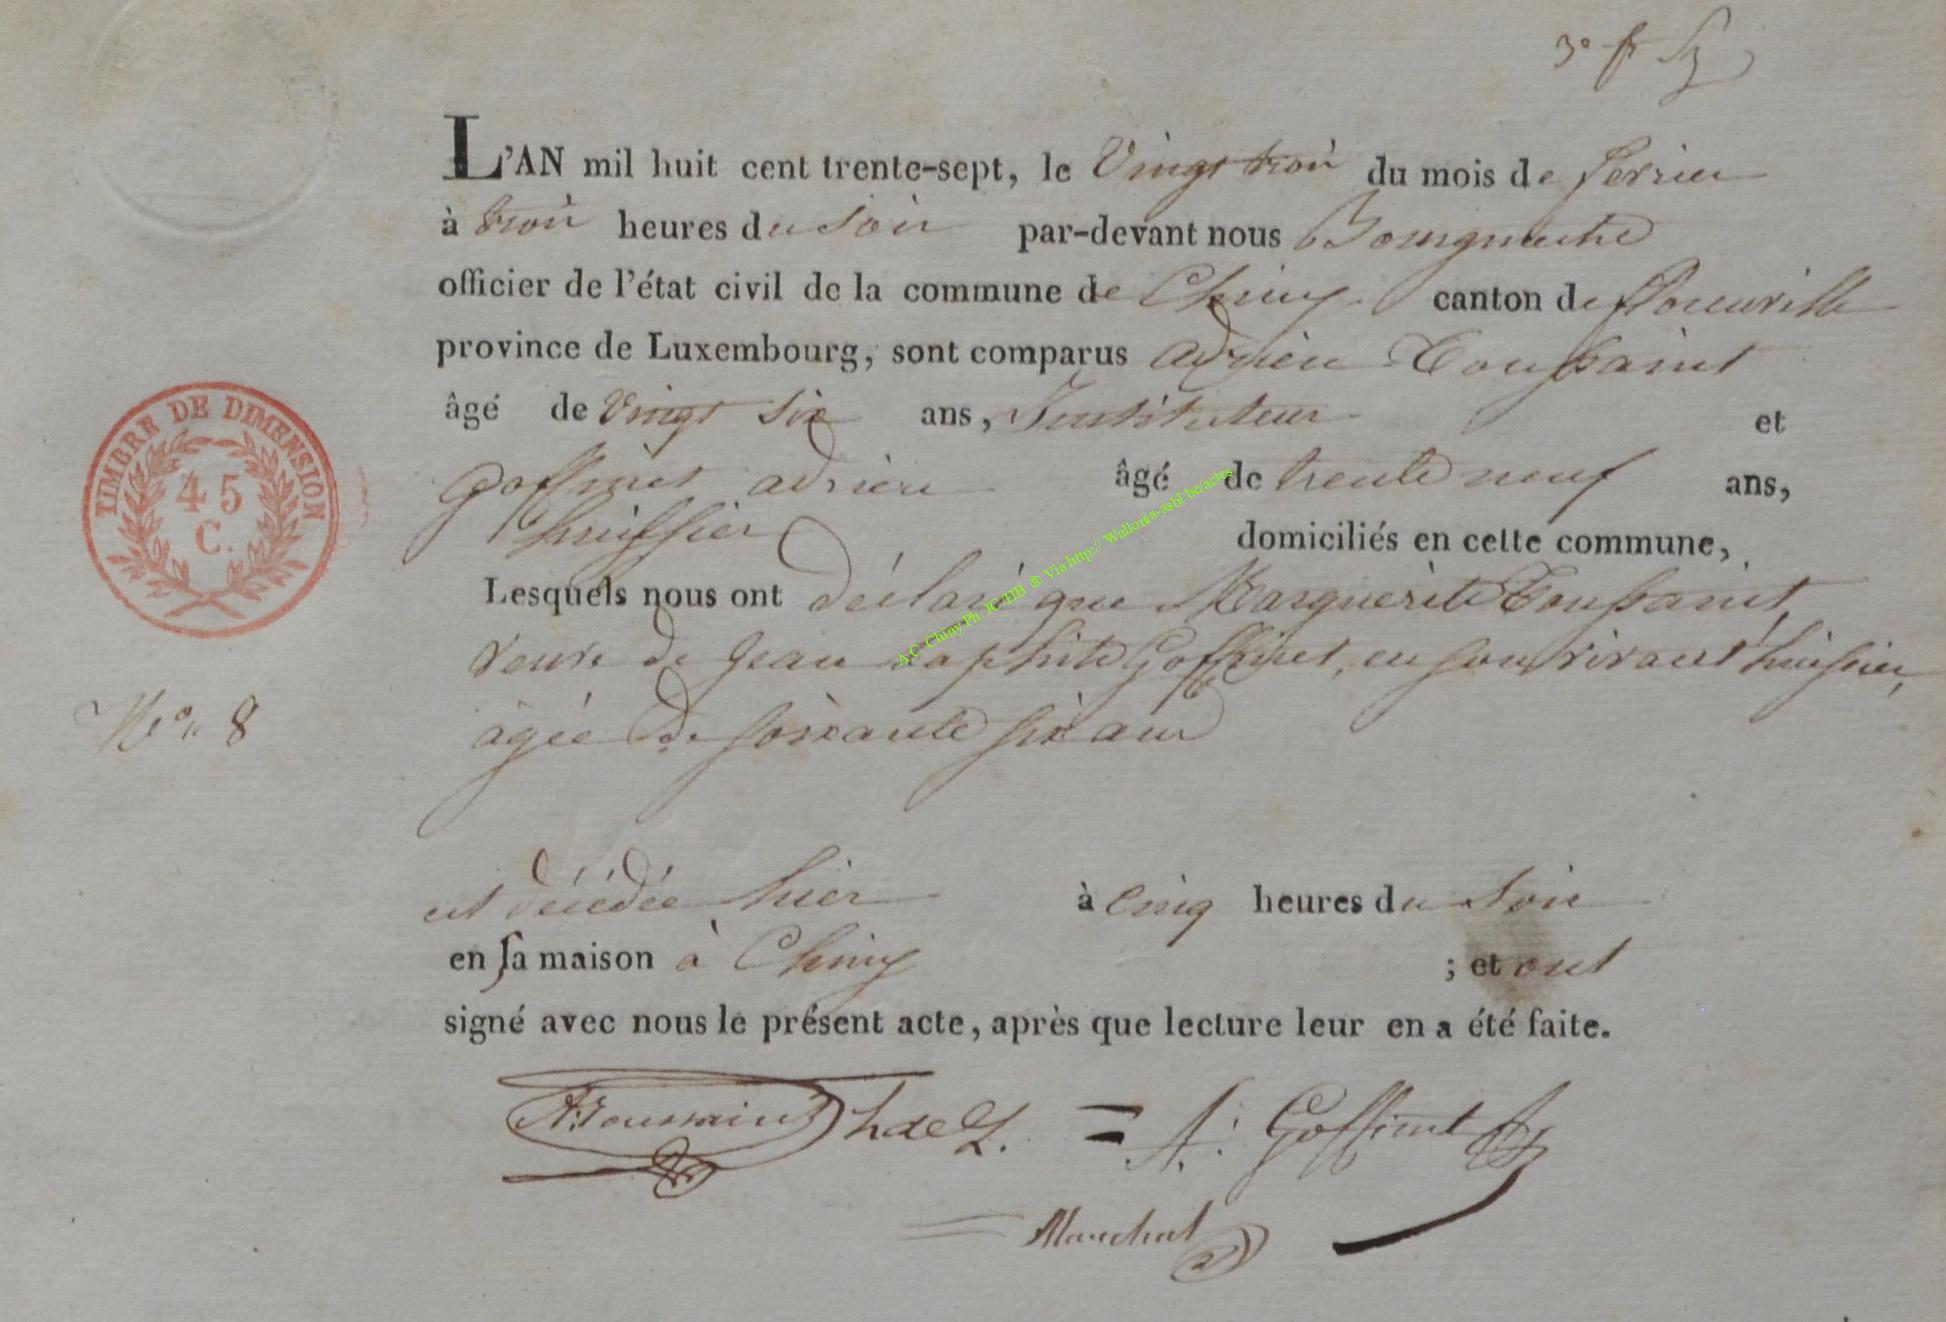 L'AN mil huit cent trente-sept, le Vingt trois du mois de fevrier
à trois heures du soir par-devant nous Bourgmestre
officier de l'état civil de la commune de Chiny canton de florenville
province de Luxembourg, sont comparus adrien Toussaint
âgé de vingt six ans, Instituteur et
goffinet adrien âgé de trente neuf ans,
huissier domiciliés en cette commune,
Lesquels nous ont déclaré que Marguerite Toussaint,
veuve de Jean baptiste Goffinet, en son vivant huissier,
âgée de soixante six ans
est décédée hier à cinq heures du soir
en sa maison à Chiny ; et ont
signé avec nous le présent acte, après que lecture leur en a été faite.
A. Toussaint A. Goffinet
Marechal
TIMBRE DE DIMENSION
45
C.
No. 8
A.C. Chiny Ph. JC/HB ® Via http:// Wallonia-asbl.be/actes